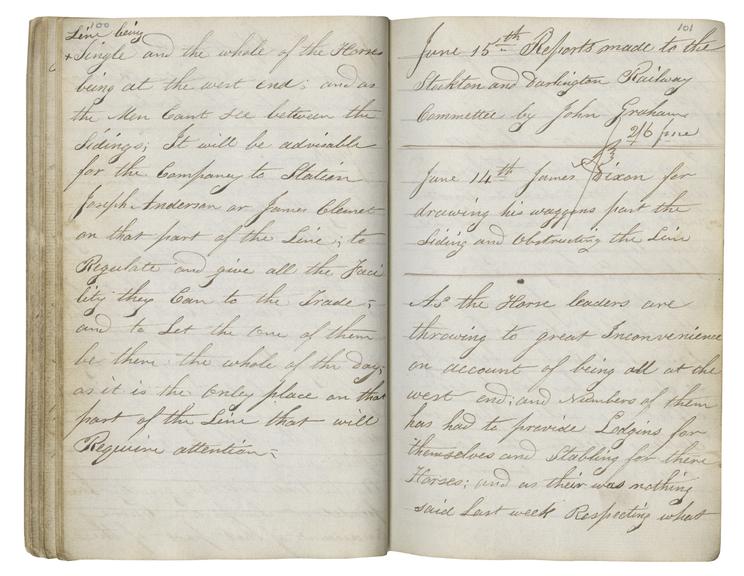 100
Line being
+ Single and the whole of the Horses
being at the west end; and as
the Men Cant see between the
Sidings; It will be advisable
for the Company to Station
Joseph Anderson or James Clemet
on that part of the Line; to
Regulate and give all the Faci
lity they Can to the Trade;
and to Let the one of them
be there the whole of the day;
as it is the Onley place on that
part of the Line that will
Requiire attention;
101
June 15th Reports made to the
Stockton and Darlington Railway
Committee by John Graham
2/6 fine
June 14th James Dixon for
drawing his waggons part the
Siding and Obstructing the Line
As the Horse leaders are
throwing to great Inconvenience
on account of being all at the
west end; and Numbers of them
has had to provide Lodgins for
themselves and Stabling for there
Horses; and as their was nothing
said Last week Respecting what